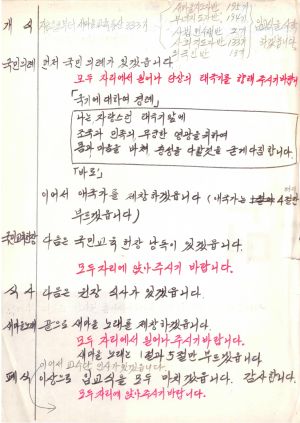 개 식
국민의례 먼저 국민의례가 있겠습니다.
모두 자리에서 일어나 단상의 태극기를 향해 주시기 바랍니다
「국기에 대하여 경례」
나는 자랑스런 태극기 앞에
조국과 민족의 무궁한 영광을 위하여
몸과 마음을 바쳐 충성을 다할 것을 굳게 다짐합니다.
「바로」
이어서 애국가를 제창하겠습니다 (애국가는 4절만
부르겠습니다)
국민교육헌장 다음은 국민교육헌장 낭독이 있겠습니다.
모두 자리에 앉아 주시기 바랍니다.
식사 다음은 원장 식사가 있겠습니다.
새마을노래 끝으로 새마을 노래를 제창하겠습니다.
모두 자리에서 일어나 주시기 바랍니다.
새마을 노래는 1절과 5절만 부르겠습니다.
이어서 교수단 인사가 있겠습니다.
폐식 이상으로 입교식을 모두 마치겠습니다. 감사합니다.
모두 자리에 앉아 주시기 바랍니다.